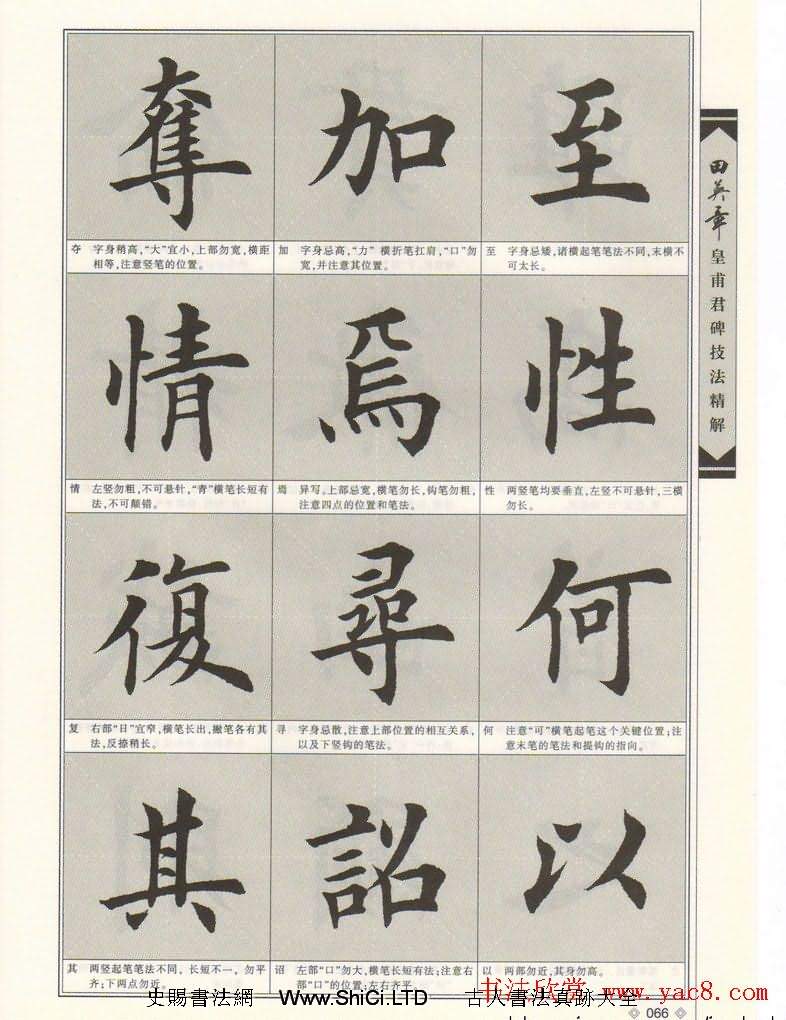 奪 加 至
夺 字身稍高,“大”宜小,上部勿宽,横距
相等,注意竖笔的位置。
加 字身忌高,“力”横折笔扛肩,“口”勿
宽,并注意其位置。
至 字身忌矮,诸横起笔笔法不同,末横不
可太长。
情 焉 性
情 左竖勿粗,不可悬针,“青”横笔长短有
法,不可颠错。
焉 异写。上部忌宽,横笔勿长,钩笔勿粗,
注意四点的位置和笔法。
性 两竖笔均要垂直,左竖不可悬针,三横
勿长。
復 尋 何
复 右部“日”宜窄,横笔长出,撇笔各有其
法,反捺稍长。
寻 字身忌散,注意上部位置的相互关系,
以及下竖钩的笔法。
何 注意“可”横笔起笔这个关键位置;注
意末笔的笔法和提钩的指向。
其 詔 以
其 两竖起笔笔法不同,长短不一,勿平
齐;下两点勿近。
诏 左部“口”勿大,横笔长短有法;注意右
部“口”的位置;左右齐平。
以 两部勿近,其身勿高。
田英章
皇甫君碑技法精解
史賜書法網 Www.ShiCi.LTD 古人書法真跡大全
书法欣赏 www.yac8.com
066